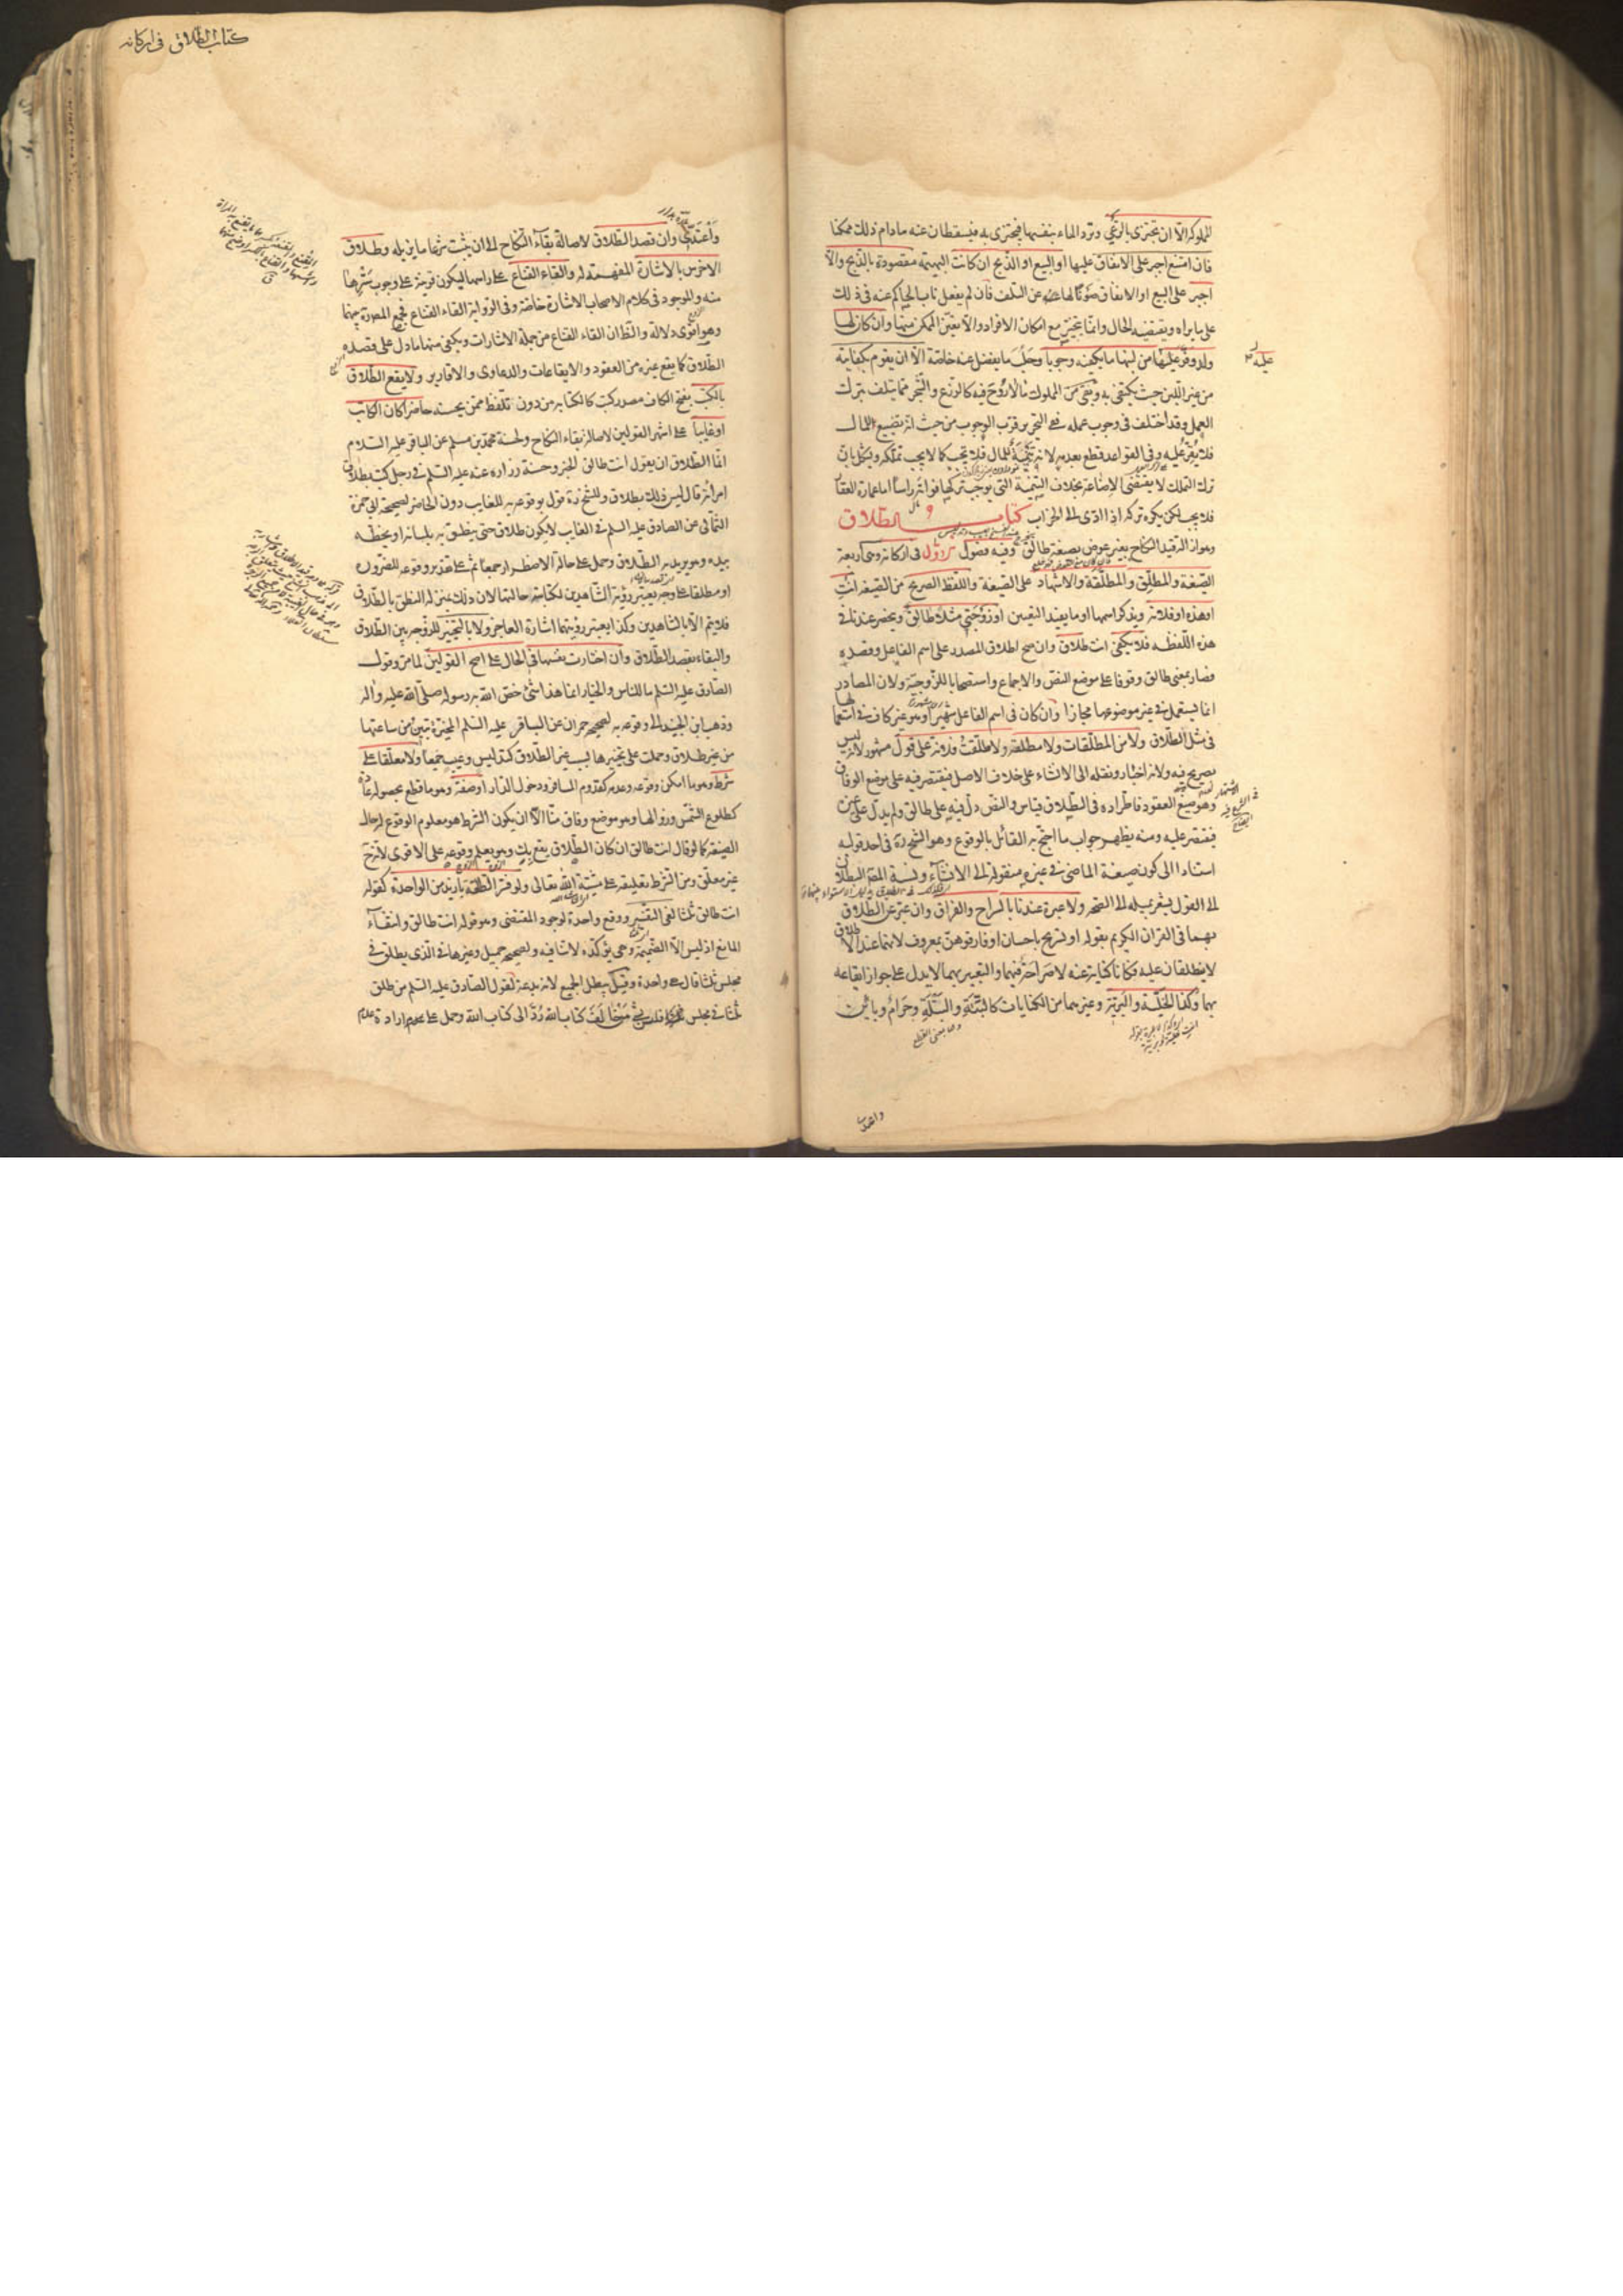 المملوكة الا ان تجتزي بالرعي وترد الماء بنفسها فيجتزى به فيسقطان عنه مادام ذلك ممكنا
فان امتنع اجبر على الانفاق عليها او البيع او الذبح ان كانت البهيمة مقصودة بالذبح والا
اجبر على البيع او الانفاق صونا لها عن التلف فان لم يفعل ناب الحاكم عنه في ذلك
على ما يراه ويقتضيه الحال وانما يتخير مع امكان الافراد والا تعين الممكن منها وان كان لها
ولد وفر عليه من لبنها ما يكفيه وجوبا وحلب ما يفضل عنه خاصة الا ان يقوم بكفايته
من غير اللبن حيث يكتفي به وبقي من المملوك ما لا روح فيه كالزرع والشجر مما يتلف بترك
العمل وقد اختلف في وجوب عمله ففي التحرير قرب الوجوب من حيث انه تضييع للمال
فلا يقر عليه وفي القواعد قطع بعدمه لانه تنمية للمال فلا تجب كما لا يجب تملكه ويشكل بان
ترك التملك لا يقتضي الاضاعة بخلاف التنمية التي يوجب تركها فواته رأسا اما عمارة العقار
فلا يجب لكن يكره تركه اذا ادى الى الخراب كتاب الطلاق
وهو ازالة قيد النكاح بغير عوض بصيغة طالق وفيه فصول الاول في اركانه وهي اربعة
الصيغة والمطلق والمطلقة والاشهاد على الصيغة واللفظ الصريح من الصيغة انت
او هذه او فلانة ويذكر اسمها او ما يفيد التعيين او زوجتي مثلا طالق وينحصر عندنا في
هذه اللفظة فلا يكفي انت طلاق وان صح اطلاق المصدر على اسم الفاعل وقصده
فصار بمعنى طالق وقوفا على موضع النص والاجماع واستصحابا للزوجية ولان المصادر
انما تستعمل في غير موضوعها مجازا وان كان في اسم الفاعل شهيرا وهو غير كاف في استعمالها
في مثل الطلاق ولا من المطلقات ولا مطلقة ولا طلقت فلانة على قول مشهور لانه ليس
بصريح فيه ولانه اخبار ونقله الى الانشاء على خلاف الاصل فيقتصر فيه على موضع الوفاق
وهو صيغ العقود فاطراده في الطلاق قياس والنص دل فيه على طالق ولم يدل على غيره
فيقتصر عليه ومنه يظهر جواب ما احتج به القائل بالوقوع وهو الشيخ ره في احد قوليه
استنادا الى كون صيغة الماضي في غيره منقولة الى الانشاء ونسبة المص البطلان
الى القول يشعر بميله الى الصحة ولا عبرة عندنا بالسراح والفراق وان عبر عن الطلاق
بهما في القران الكريم بقوله او تسريح باحسان او فارقوهن بمعروف لانهما عند الاطلاق
لا ينطلقان عليه فكانا كناية عنه لا صراحة فيهما والتعبير بهما لا يدل على جواز ايقاعه
بهما وكذا الخلية والبرية وغيرهما من الكنايات كالبتة والبتلة وحرام وبائن
واعتدي
كتاب الطلاق في اركانه
واعتدي وان قصد الطلاق لاصالة بقاء النكاح الى ان يثبت شرعا ما يزيله وطلاق
الاخرس بالاشارة المفهمة له والقاء القناع على راسها ليكون قرينة على وجوب سترها
منه والموجود في كلام الاصحاب الاشارة خاصة وفي الرواية القاء القناع فجمع المص ره بينهما
وهو اقوى دلالة والظ ان القاء القناع من جملة الاشارات ويكفي منها ما دل على قصده
الطلاق كما يقع غيره من العقود والايقاعات والدعاوى والاقارير ولا يقع الطلاق
بالكتب بفتح الكاف مصدر كتب كالكتابة من دون تلفظ ممن يحسنه حاضرا كان الكاتب
او غايبا على اشهر القولين لاصالة بقاء النكاح ولحسنة محمد بن مسلم عن الباقر عليه السلام
انما الطلاق ان يقول انت طالق الخبر وحسنة زرارة عنه عليه السلم في رجل كتب بطلاق
امراته قال ليس ذلك بطلاق وللشيخ ره قول بوقوعه به للغايب دون الحاضر لصحيحة ابي حمزة
الثمالي عن الصادق عليه السلم في الغايب لا يكون طلاق حتى ينطق به بلسانه او يخطه
بيده وهو يريد به الطلاق وحمل على حالة الاضطرار جمعا ثم على تقدير وقوعه للضرورة
او مطلقا على وجه يعتبر رؤية الشاهدين لكتابته حالتها لان ذلك بمنزلة النطق بالطلاق
فلا يتم الا بالشاهدين وكذا يعتبر رؤيتهما اشارة العاجز ولا بالتخيير للزوجة بين الطلاق
والبقاء بقصد الطلاق وان اختارت نفسها في الحال على اصح القولين لما مر وقول
الصادق عليه السلم ما للناس والخيار انما هذا شئ خص الله به رسوله صلى الله عليه واله
وذهب ابن الجنيد الى وقوعه به لصحيحة حمران عن الباقر عليه السلم المخيرة تبين من ساعتها
من غير طلاق وحملت على تخييرها بسبب غير الطلاق كتدليس وعيب جمعا ولا معلقا على
شرط وهو ما امكن وقوعه وعدمه كقدوم المسافر ودخول الدار او صفة وهو ما قطع بحصوله عادة
كطلوع الشمس وزوالها وهو موضع وفاق منا الا ان يكون الشرط معلوم الوقوع له حال
الصيغة كما لو قال انت طالق ان كان الطلاق يقع بك وهو يعلم وقوعه على الاقوى لانه ح
غير معلق ومن الشرط تعليقه على مشية الله تعالى ولو فسر الطلقة بازيد من الواحدة كقوله
انت طالق ثلثا لغى التفسير ووقع واحدة لوجود المقتضى وهو قوله انت طالق وانتفاء
المانع اذ ليس الا الضميمة وهي تؤكده لا تنافيه ولصحيحة جميل وغيرها في الذي يطلق في
مجلس ثلثا قال هي واحدة وقيل يبطل الجميع لانه بدعة لقول الصادق عليه السلم من طلق
ثلثا في مجلس فليس بشئ من خالف كتاب الله رد الى كتاب الله وحمل على ارادة عدم